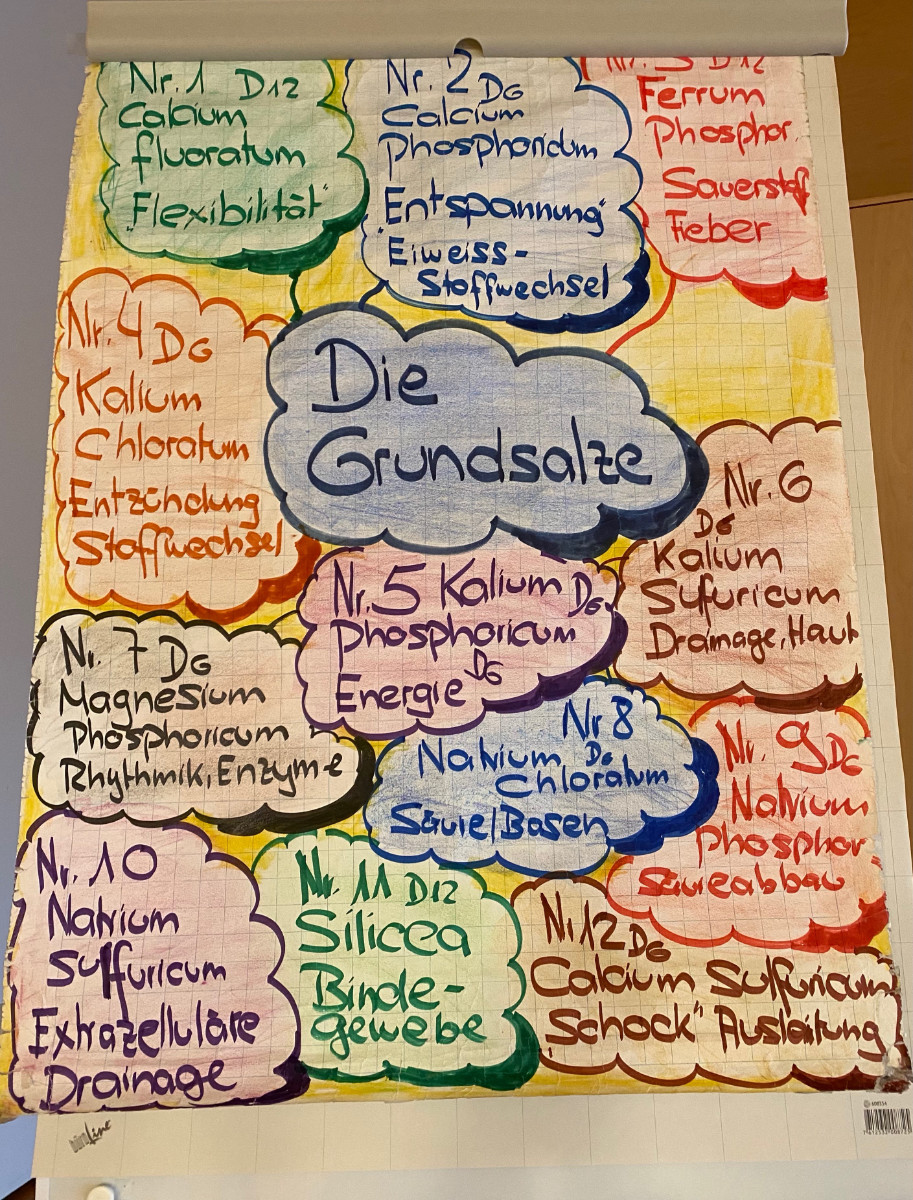 Nr. 1 D12
Calcium
fluoratum
"Flexibilität"
Nr. 2 D6
Calcium
Phosphoricum
"Entspannung"
"Eiweiss-
Stoffwechsel
Nr. 3 D12
Ferrum
Phosphor.
Sauerstoff
Fieber
Nr. 4 D6
Kalium
Chloratum
Entzündung
Stoffwechsel
Die
Grundsalze
Nr. 5 Kalium D6
phosphoricum
Energie D6
Nr. 6
D6
Kalium
Sufuricum
Drainage, Haut
Nr. 7 D6
Magnesium
Phosphoricum
Rhythmik, Enzyme
Nr 8
Natrium D6
Chloratum
Säure/Basen
Nr. 9 D6
Natrium
phosphor
Säureabbau
Nr. 10
Natrium
Sulfuricum
Extrazelluläre
Drainage
Nr. 11 D12
Silicea
Binde-
gewebe
Nr 12 D6
Calcium Sulfuricum
"Schock" Ausleitung